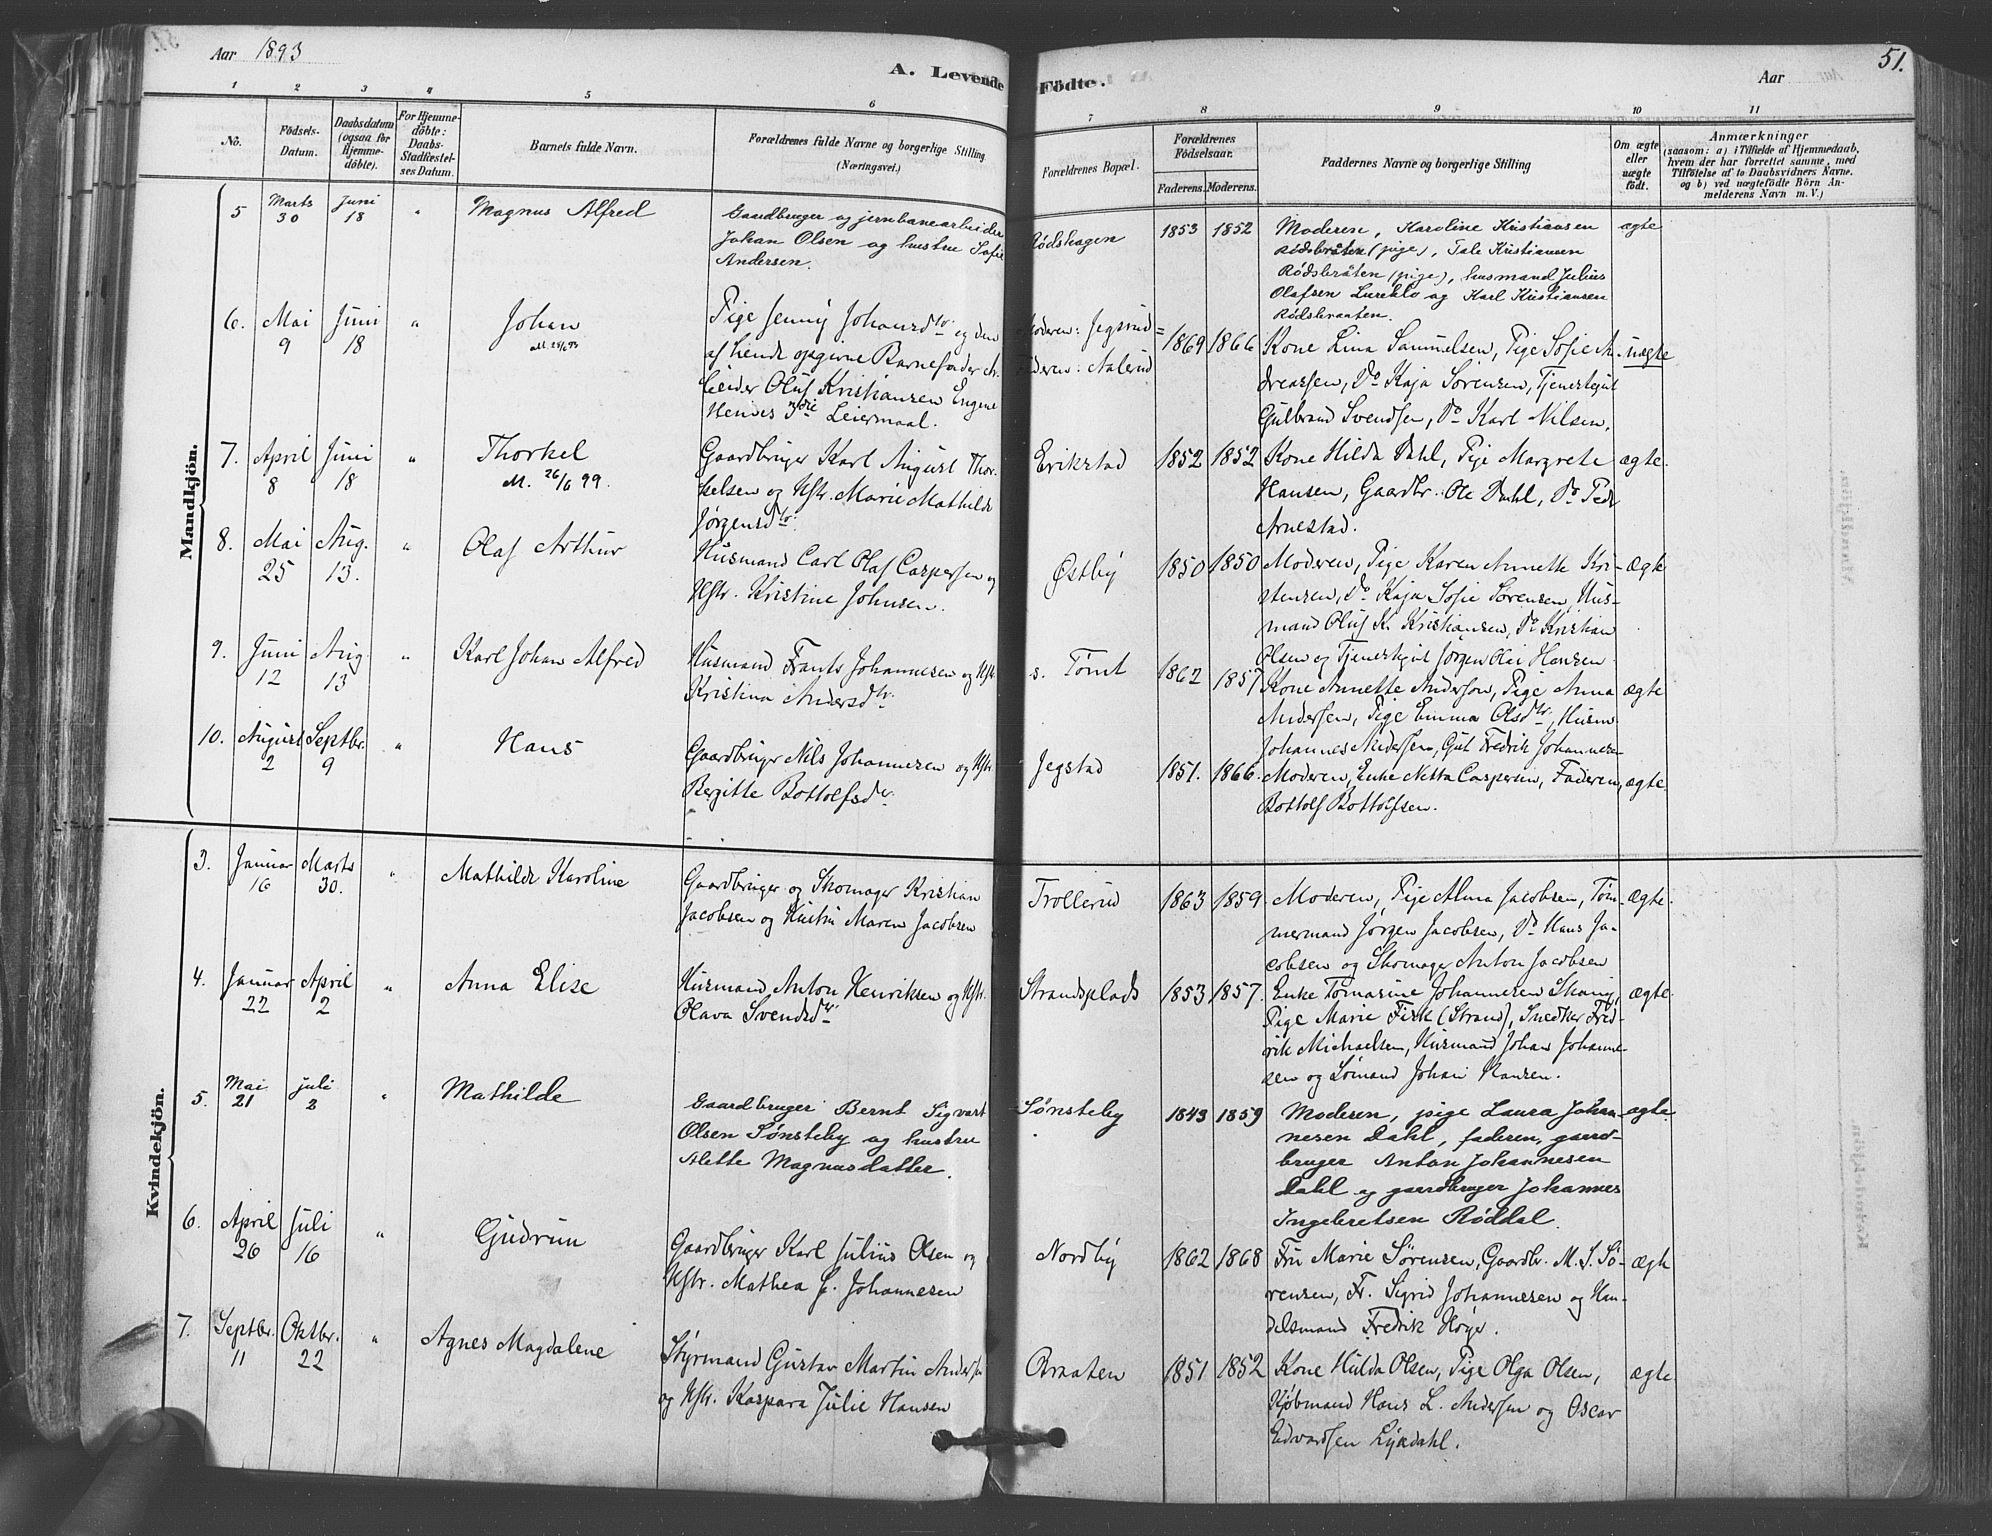 Aar 1893
A. Levende Födte.
Aar
51.
1 2 3 4 5 6 7 8 9 10 11
No.
Födsels-
Datum.
Daabsdatum
(ogsaa for
Hjemme-
döbte).
For Hjemme-
döbte:
Daabs-
Stadfæstel-
ses Datum.
Barnets fulde Navn.
Forældrenes fulde Navne og borgerlige Stilling
(Næringsvei.)
Forældrenes Bopæl.
Forældrenes
Födselsaar.
Faderens. Moderens.
Faddernes Navne og borgerlige Stilling
Om ægte
eller
uægte
födt.
Anmærkninger
(saasom: a) i Tilfælde af Hjemmedaab,
hvem der har forrettet samme, med
Tilföielse af to Daabsvidners Navne.
og b) ved uægtefödte Börn An-
melderens Navn m. V.)
Mandkjön.
5 Marts 30 Juni 18 " Magnus Alfred
Gaardbruger og jernbanearbeider
Johan Olsen og hustru Sofie
Andersen.
Rødshagen 1853 1852
Moderen, Karoline Kristiansen
Rødsbråten (pige), Tale Kristiansen
Rødsbråten (pige), husmand Julius
Olafsen Lureklo og Karl Kristiansen
Rødsbraaten.
ægte
6. Mai 9 Juni 18 " Johan
Pige Jenny Johansdtr og den
af hende opgivne Barnefader Ar-
beider Oluf Kristiansen Engene
Hendes 3die Leiermaal.
Moderen: Jegsrud
Faderen: Aalerud
1869 1866
Kone Lina Samuelsen, Pige Sofie A-
dreassen, Do Kaja Sørensen, Tjenestgut
Gulbrand Svendsen, Do Karl Nilsen.
uægte
7. April 8 Juni 18 " Thorkel
M. 26/6 99.
Gaardbruger Karl August Thor-
kelsen og Hstr. Marie Mathilde
Jørgensdtr.
Erikstad 1852 1852
Kone Hilda Dahl, Pige Margrete
Hansen, Gaardbr. Ole Dahl, Do Peder
Arnestad.
ægte.
8. Mai 25 Aug. 13. " Olaf Arthur
Husmand Carl Olaf Caspersen og
Hstr. Kristine Johnsen.
Østby 1850 1850
Moderen, Pige Karen Annette Kri-
stensen, Do Kaja Sofie Sørensen, Hus-
mand Oluf K. Kristiansen, Do Kristian
Olsen og Tjenestgut Jørgen Olai Hansen
ægte
9. Juni 12 Aug. 13 " Karl Johan Alfred
Husmand Frants Johannesen og Hstr.
Kristina Andersdtr.
s. Tomt 1862 1857
Kone Annette Anderson, Pige Anna
Andersen, Pige Emma Olsdtr, Husm.
Johannes Andersen, Gut Fredrik Johannese-
ægte
10. August 2 Septbr. 9 " Hans
Gaardbruger Nils Johannesen og Hstr.
Bergitte Bottolfsdtr.
Jegstad 1851. 1866.
Moderen, Enke Netta Caspersen, Faderen,
Bottolf Bottolfsen.
ægte
Kvindekjön.
3. Januar 16 Marts 30. " Mathilde Karoline
Gaardbruger og Skomager Kristian
Jacobsen og Hustru Maren Jacobsen
Trollerud 1863 1859
Moderen, Pige Alma Jacobsen, Töm-
mermand Jørgen Jacobsen, Do Hans Ja-
cobsen og Skomager Anton Jacobsen
ægte.
4. Januar 22 April 2 " Anna Elise
Husmand Anton Henriksen og Hstr.
Olava Svendsdtr
Strandsplads 1853 1857.
Enke Tomasine Johannesen Skaug,
Pige Marie Fisk (Strand), Snedker Fred-
rik Michaelsen, Husmand Johan Johanne-
sen og Sømand Johan Hansen.
ægte.
5. Mai 21 juli 2 " Mathilde
Gaardbruger Bernt Sigvart
Olsen Sønsteby og hustru
Alette Magnusdatter.
Sønsteby 1843 1859
Moderen, pige Laura Johan-
nesen Dahl, faderen, gaard-
bruger Anton Johannesen
Dahl og gaardbruger Johannes
Ingebretsen Røddal.
ægte.
6. April 26 Juli 16 " Gudrun
Gaardbruger Karl Julius Olsen og
Hstr. Mathea J. Johannesen
Nordby 1862 1868
Fru Marie Sørensen, Gaardbr. M. S. Sö-
rensen, Fr. Sigrid Johannesen og Han-
delsmand Fredrik Høye.
ægte
7. Septbr. 11 Oktbr. 22 " Agnes Magdalene
Styrmand Gustav Martin Andersen
og Hstr. Kaspara Julie Hansen
Braaten 1851 1852
Kone Hulda Olsen, Pige Olga Olsen,
Kjøbmand Hans L. Andersen og Oscar
Edvardsen Lykdahl.
ægte